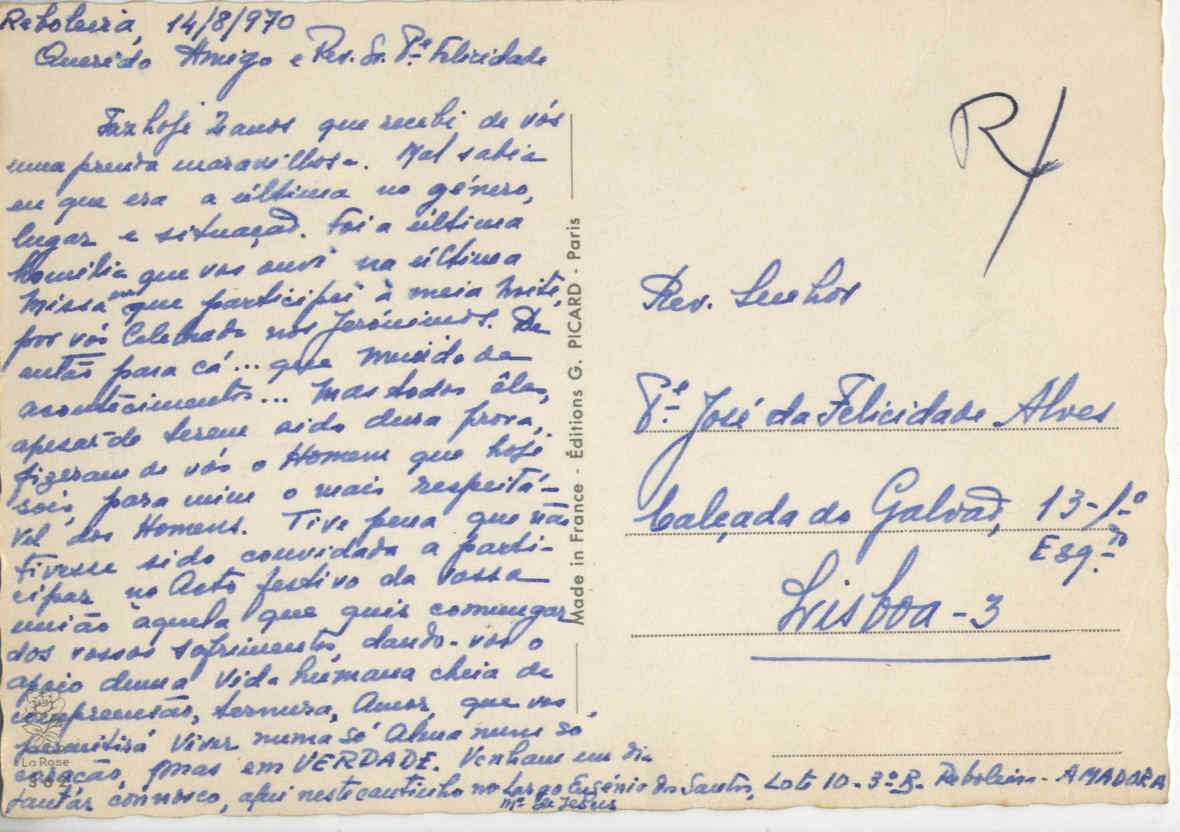 Reboleira, 14/8/970
Querido Amigo e Rev. Sr. Pᵉ Felicidade
Faz hoje 2 anos que recebi de vós
uma prenda maravilhosa. Mal sabia
eu que era a última no género,
lugar e situação. Foi a última
homilia que vos ouvi na última
Missa em que participei à meia noite,
por vós celebrada nos Jerónimos. De
então para cá... que mundo de
acontecimentos... Mas todos êles,
apesar de terem sido dura prova,
fizeram de vós o Homem que hoje
sois, para mim o mais respeitá-
vel dos Homens. Tive pena que não
tivesse sido convidada a parti-
cipar no Acto festivo da vossa
união àquela que quis comungar
dos vossos sofrimentos, dando-vos o
apoio duma vida humana cheia de
compreensão, ternura, Amor, que vos
permitirá viver numa só Alma num só
coração, mas em VERDADE. Venham um dia
jantar connosco, aqui neste cantinho no Largo Eugénio dos Santos, Lote 10-3º B. Reboleira - AMADORA
Mª de Jesus
La Rose
Made in France - Éditions G. PICARD - Paris
R
Rev. Senhor
Pᵉ José da Felicidade Alves
Calçada do Galvão, 13-1º
Esqᵈᵒ
Lisboa-3